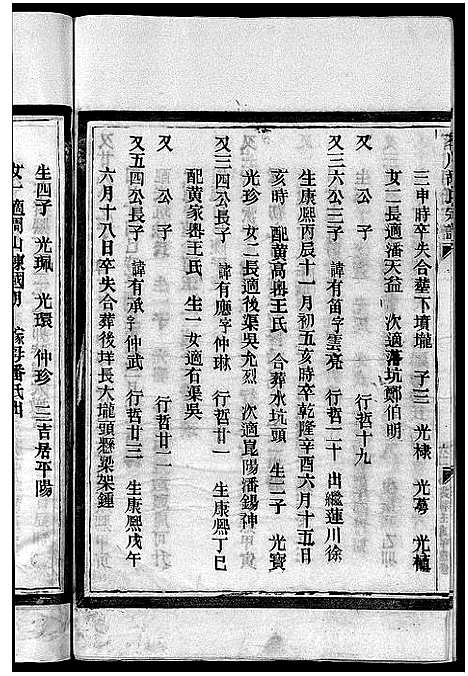 三申時卒失合塟下墳壠　子三　光棣　光蕚　光植
女二長適潘天益　次適蕩坑鄭伯明
又　公　子　行哲十九
又三六公三子　諱有笛字雲亮　行哲二十　出繼蓮川徐
生康熈丙辰十一月初五亥時卒乾隆辛酉六月十五日
亥時　配黃高嶴王氏　合葬水坑頭　生二子　光寳
光珍　女二長適後渠吳允烈　次適崑陽潘錫紳
又三四公長子　諱有應字仲琳　行哲廿一　生康熈丁巳
配黃家嶴王氏　生一女適右渠吳
又　公　子　行哲廿二
又五四公長子　諱有承字仲武　行哲廿三　生康熈戊午
六月十八日卒失合葬後垟長大壠頭懸梁架鍾
生四子　光珮　光環　仲珍　三吉居平陽
女一適闁山陳國明　嫁母潘氏